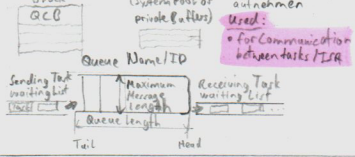 QCB
(System Pool or
private Buffers)
aufnehmen
Used:
• for Communication
between tasks/ISR
Queue Name/ID
Sending Task
waiting List
Maximum
Message
Length
Receiving Task
waiting List
Queue Length
Tail
Head